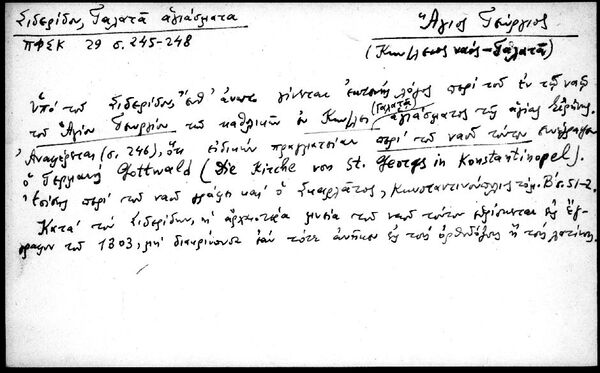 Σιδερίδου, Γαλατᾶ ἁγιάσματα
ΠΦΣΚ 29 σ. 245-248
Ἅγιος Γεώργιος
(Κων/λεως ναός - Γαλατᾶ)
Ὑπό τοῦ Σιδερίδου, ἔνθ' ἄνωτ. γίνεται ἐκτενής λόγος περί τοῦ ἐν τῷ ναῷ
τοῦ Ἁγίου Γεωργίου τῶν καθολικῶν ἐν Κων/λει (Γαλατᾶ) ἁγιάσματος τῆς ἁγίας Εἰρήνης.
Ἀναφέρεται (σ. 246), ὅτι εἰδικήν πραγματείαν περί τοῦ ναοῦ τούτου συνέγραψεν
ὁ Γερμανός Gottwald (Die Kirche von St. Georgs in Konstantinopel).
Ἐπίσης περί τοῦ ναοῦ γράφει καί ὁ Σκαρλᾶτος, Κωνσταντινούπολις τόμ. Β' σ. 51-2.
Κατά τόν Σιδερίδην, ἡ ἀρχαιοτέρα μνεία τοῦ ναοῦ τούτου εὑρίσκεται εἰς ἔγ-
γραφον τοῦ 1303, μή διακρίνουσα ἐάν τότε ἀνῆκεν εἰς τούς ὀρθοδόξους ἤ τούς λατίνους.